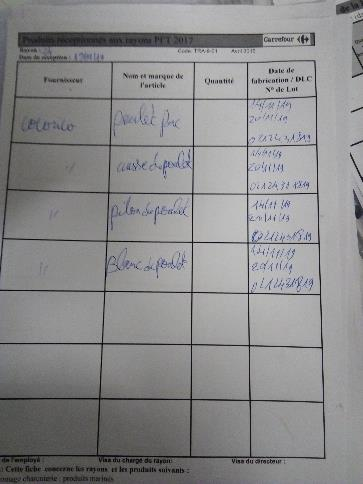 Produits réceptionnés aux rayons PCT 2017
Carrefour
Rayon :
Code: TRA-6-01
Avril 2015
Date de réception :
Fournisseur
Nom et marque de l'article
Quantité
Date de fabrication / DLC
N° de Lot
cocorico
poulet pac
14/11/19
20/11/19
0212431819
"
cuisse de poulet
14/11/19
20/11/19
0212431819
"
pilon de poulet
14/11/19
20/11/19
0212431819
"
Blanc de poulet
20/11/19
0212431819
de l'employé :
Visa du chargé du rayon:
Visa du directeur :
: Cette fiche concerne les rayons et les produits suivants :
charcuterie : produits marinés